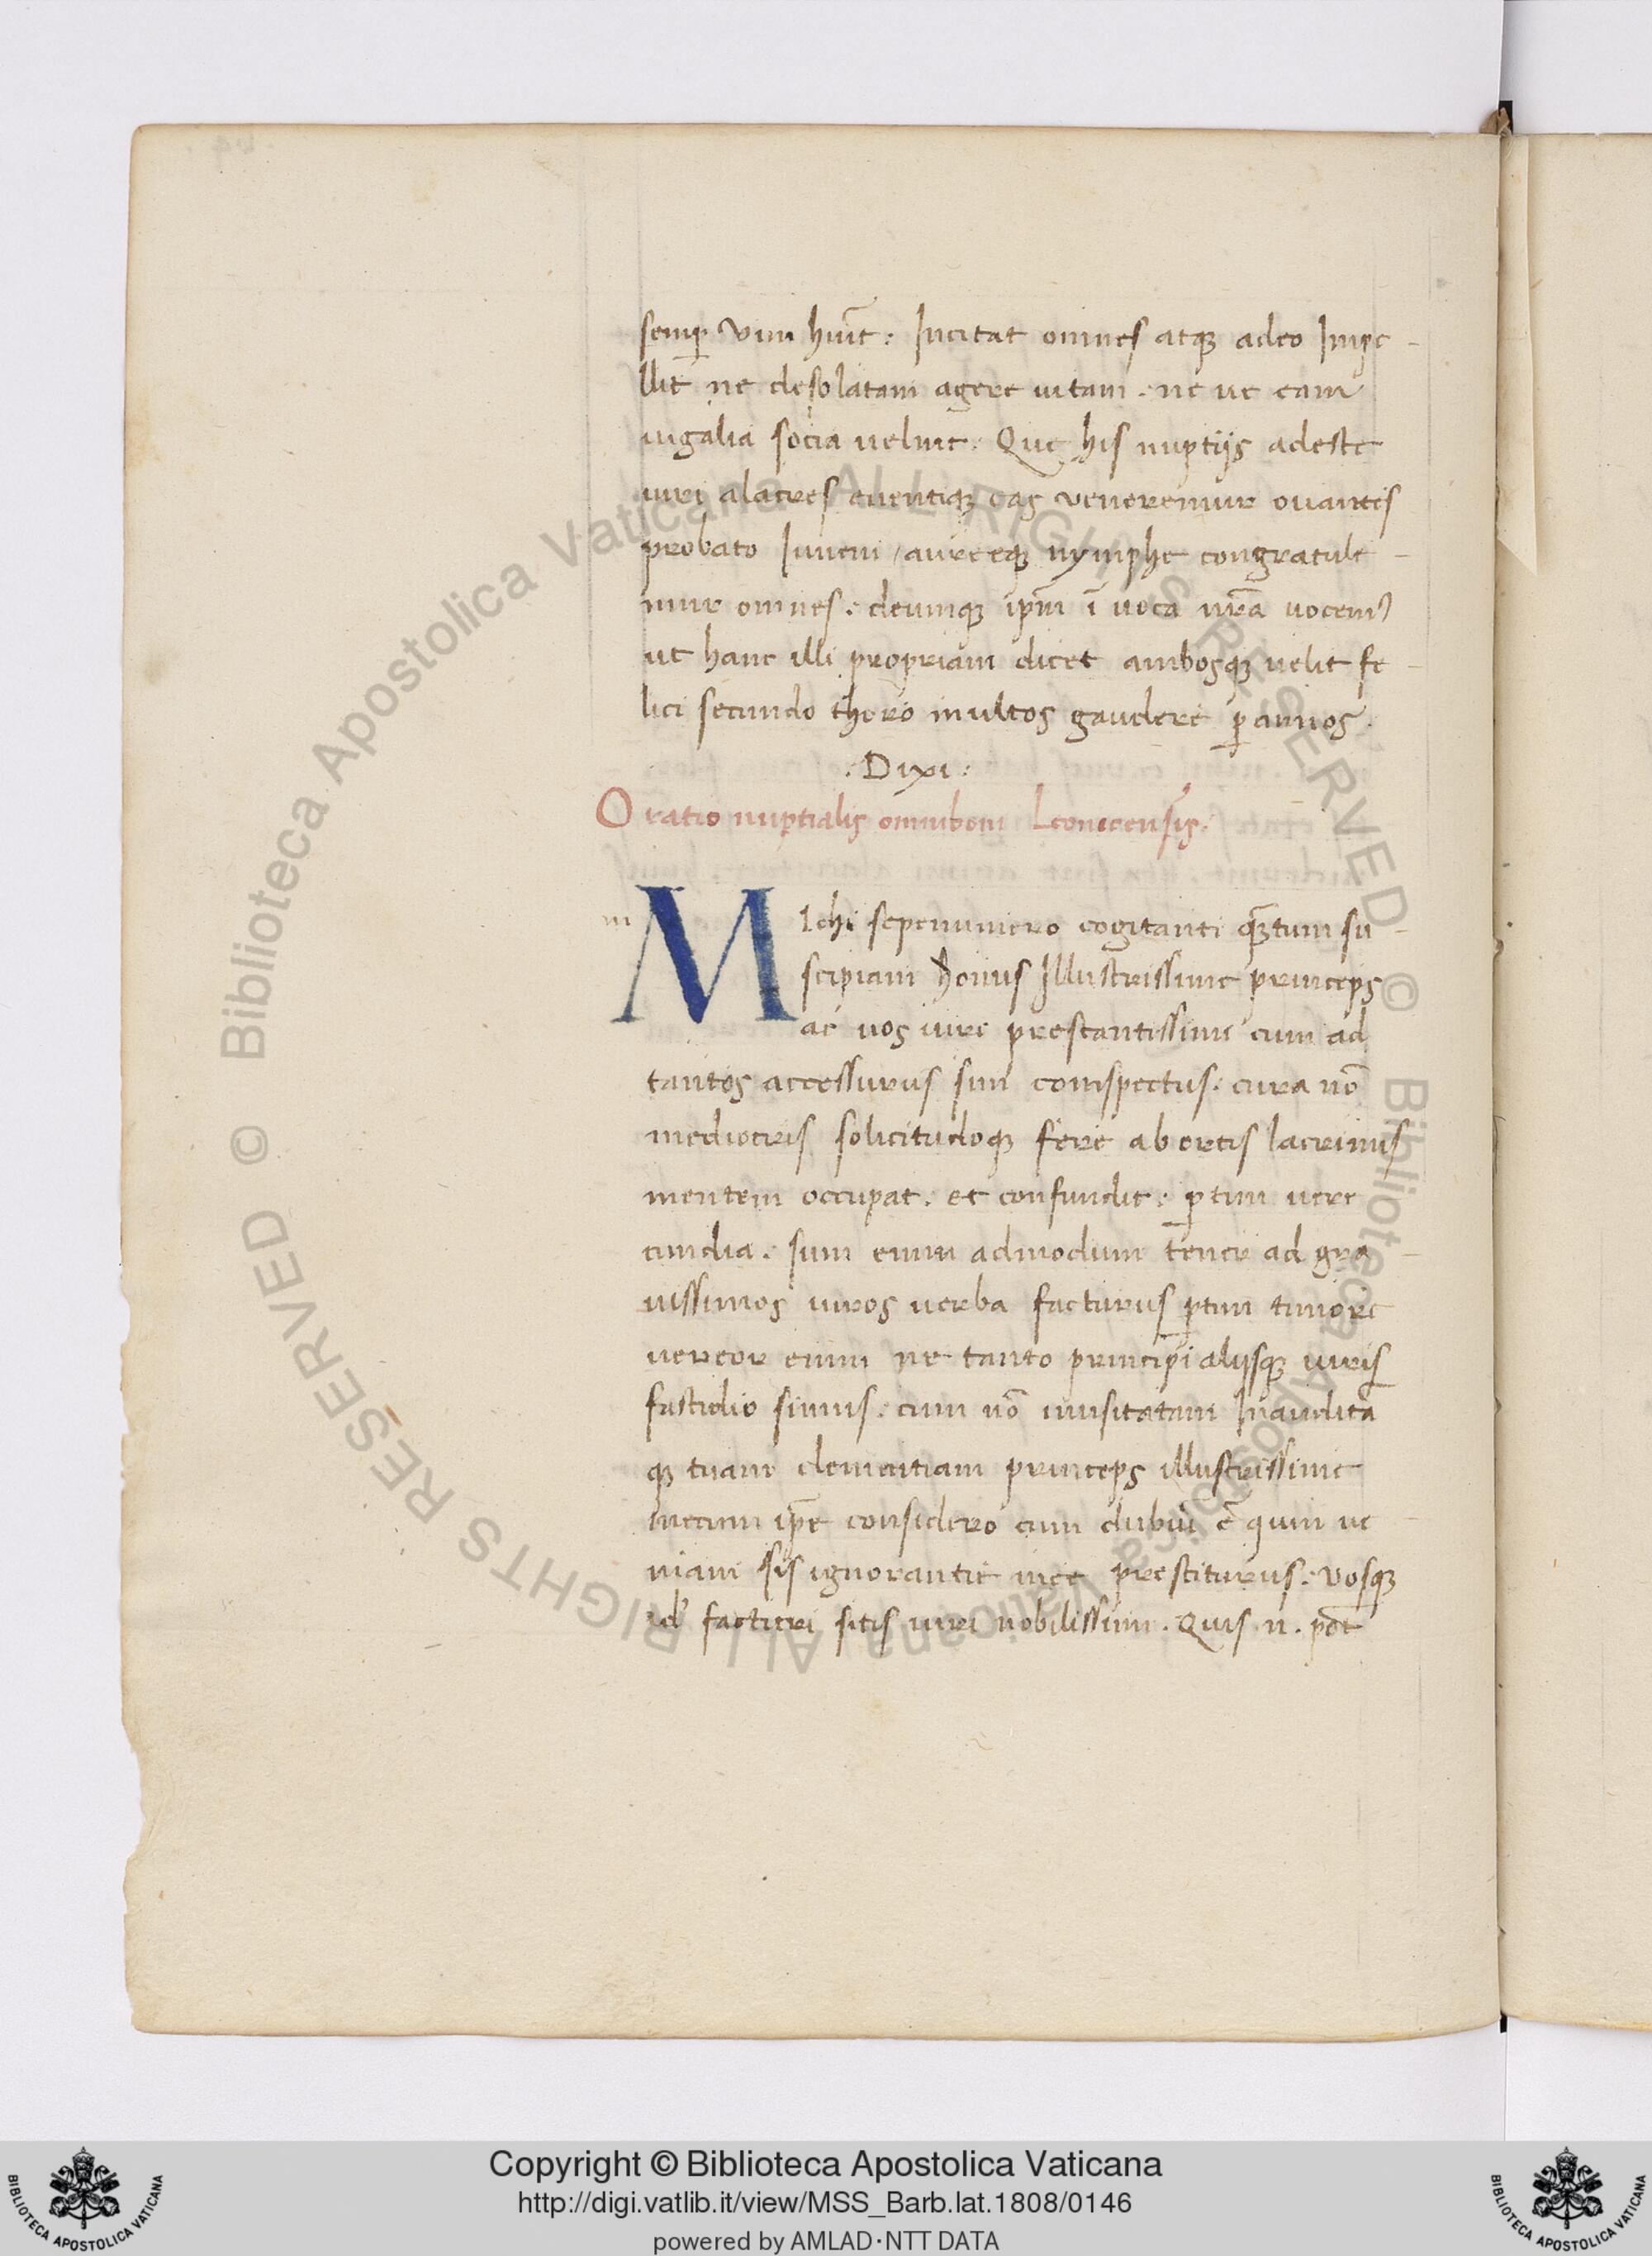 semꝑ vim huĩt: Incitat omnes atqꝫ adeo Impe-
llit ne desolatam agere uitam. ne ue eam
iugalia socia uelint. Que his nuptijs adeste
uiri alacres auentiqꝫ eas veneremur ouantes
probato Iuueni / aureeqꝫ nymphe congratule-
mur omnes. deumqꝫ ip̃m ĩ uota nr̃a uocem9
ut hanc illi propriam dicet ambosqꝫ uelit fe-
lici secundo thoro multos gaudere ꝑ annos.
:Dixi:
Oratio nuptialis omniboni Leonicensis.
m
Michi sepenumero cogitanti quãtum su-
scipiam honus Illustrissime princeps
ac uos uiri prestantissimi cum ad
tantos accessurus sim conspectus. cura nõ
mediocris solicitudoqꝫ fere ab ortis lacrimis
mentem occupat. et confundit: ꝑtim uere
cundia. sum enim admodum tener ad gra-
uissimos uiros uerba facturus ꝑtim timore
uereor enim ne tanto principi alijsqꝫ uiris
fastidio simus. cum nõ inusitatam Inauditã
qꝫ tuam clementiam princeps illustrissime
mecum ip̃e considero cum dubiũ ẽ quin ue-
niam sis ignorantie mee prestiturus: vosqꝫ
id facturi sitis uiri nobilissimi. Quis .n. põt
Copyright © Biblioteca Apostolica Vaticana
http://digi.vatlib.it/view/MSS_Barb.lat.1808/0146
powered by AMLAD·NTT DATA
© Biblioteca Apostolica Vaticana ALL RIGHTS RESERVED
© Biblioteca Apostolica Vaticana ALL RIGHTS RESERVED
BIBLIOTECA APOSTOLICA VATICANA
BIBLIOTECA APOSTOLICA VATICANA